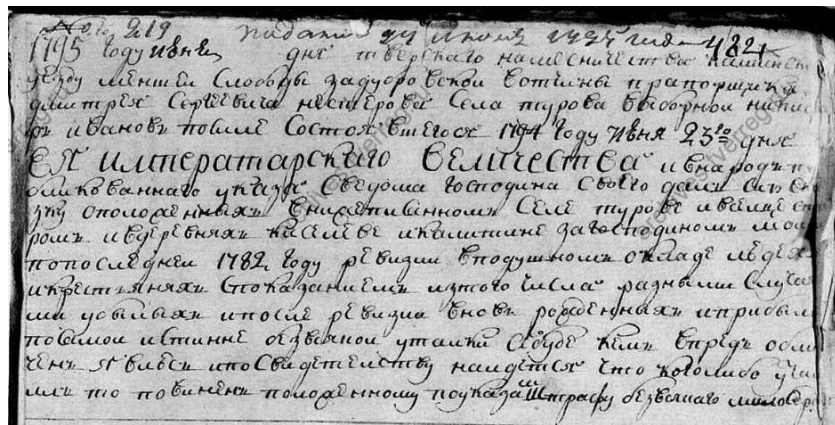 No 219 подани 24 июня 1795 года 482
1795 году июня дня тверскаго наместничества кашинской
уезду меншей слободы задубровской вотчины прапорщика
дмитрея Сергеевича нестерова Села турова выборной
иванов по силе Состоявшегося 1794 году июня 23го дня
ЕЯ императорскаго величества и внарод пу
бликованнаго указа Сведома господина Своего дал Сию Ска
зку оположенных внижеписанном Селе турове
ром идеревнях киселеве икалитине загосподином моим
попоследней 1782 году ревизии вподушном окладе людех
икрестьянях Споказанием изтого числа разными Случая
ми убылых ипосле ревизии вновь рожденных иприбылых
посамои истинне безвсякой утайки Абуде кем впредь обли
чен явлюсь ипоСвидетельству найдется что коголибо утаи
л то повинен положенному поуказам Штрафу безвсякаго милосерд